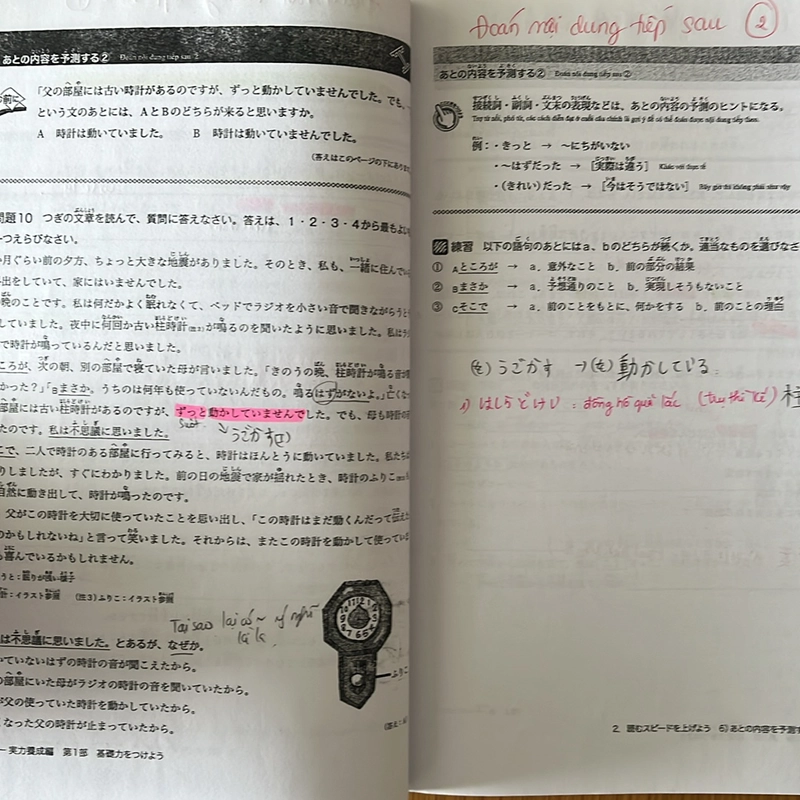 あとの内容を予測する② Đoán nội dung tiếp sau 2
「父の部屋には古い時計があるのですが、ずっと動かしていませんでした。でも、
という文のあとには、AとBのどちらが来ると思いますか。
A 時計は動いていました。 B 時計は動いていませんでした。
(答えはこのページの下にあります
問題10 つぎの文章を読んで、質問に答えなさい。答えは、1・2・3・4から最もよい
一つえらびなさい。
か月ぐらい前の夕方、ちょっと大きな地震がありました。そのとき、私も、一緒に住んでい
外出をしていて、家にはいませんでした。
晩のことです。私は何だかよく眠れなくて、ベッドでラジオを小さい音で聞きながらうと
していました。夜中に何回か古い柱時計が鳴るのを聞いたように思いました。私は
で時計が鳴っているんだと思いました。
ころが、次の朝、別の部屋で寝ていた母が言いました。「きのうの晩、柱時計が鳴る音
かった?」「Bまさか。うちのは何年も使っていないんだもの。鳴るはずがないよ。」亡くな
部屋には古い柱時計があるのですが、ずっと動かしていませんでした。でも、母も時計の
たのです。私は不思議に思いました。
suốt うごかす(と)
こで、二人で時計のある部屋に行ってみると、時計はほんとうに動いていました。私たちは
りしましたが、すぐにわかりました。前の日の地震で家が揺れたとき、時計のふりこ
自然に動き出して、時計が鳴ったのです。
父がこの時計を大切に使っていたことを思い出し、「この時計はまだ動くんだって伝え
のかもしれないね」と言って笑いました。それからは、またこの時計を動かして使ってい
も喜んでいるかもしれません。
うと:眠りが浅い様子
計:イラスト参照 (注3)ふりこ:イラスト参照
Tại sao lại có ~ ý nghĩ
kì lạ
は不思議に思いました。とあるが、なぜか。
いていないはずの時計の音が聞こえたから。
の部屋にいた母がラジオの時計の音を聞いていたから。
が父の使っていた時計を動かしていたから。
くなった父の時計が止まっていたから。
ふりこ
実力養成編 第1部 基礎力をつけよう
Đoán nội dung tiếp sau ②
あとの内容を予測する② Đoán nội dung tiếp sau ②
接続詞・副詞・文末の表現などは、あとの内容の予測のヒントになる。
Trợ từ nối, phó từ, các cách diễn đạt ở cuối câu chính là gợi ý để có thể đoán được nội dung tiếp theo.
例:・きっと → ～にちがいない
・～はずだった → [実際は違う] Khác với thực tế
・(きれい)だった → [今はそうではない] Bây giờ thì không phải như vậy
練習 以下の語句のあとにはa、bのどちらが続くか。適当なものを選びなさ
① Aところが → a. 意外なこと b. 前の部分の結果
② Bまさか → a. 予想通りのこと b. 実現しそうもないこと
③ Cそこで → a. 前のことをもとに、何かをする b. 前のことの理由
(を)うごかす → (を)動かしている:
はしらどけい: đồng hồ quả lắc (trụ thì kế) 柱
2. 読むスピードを上げよう 6)あとの内容を予測す